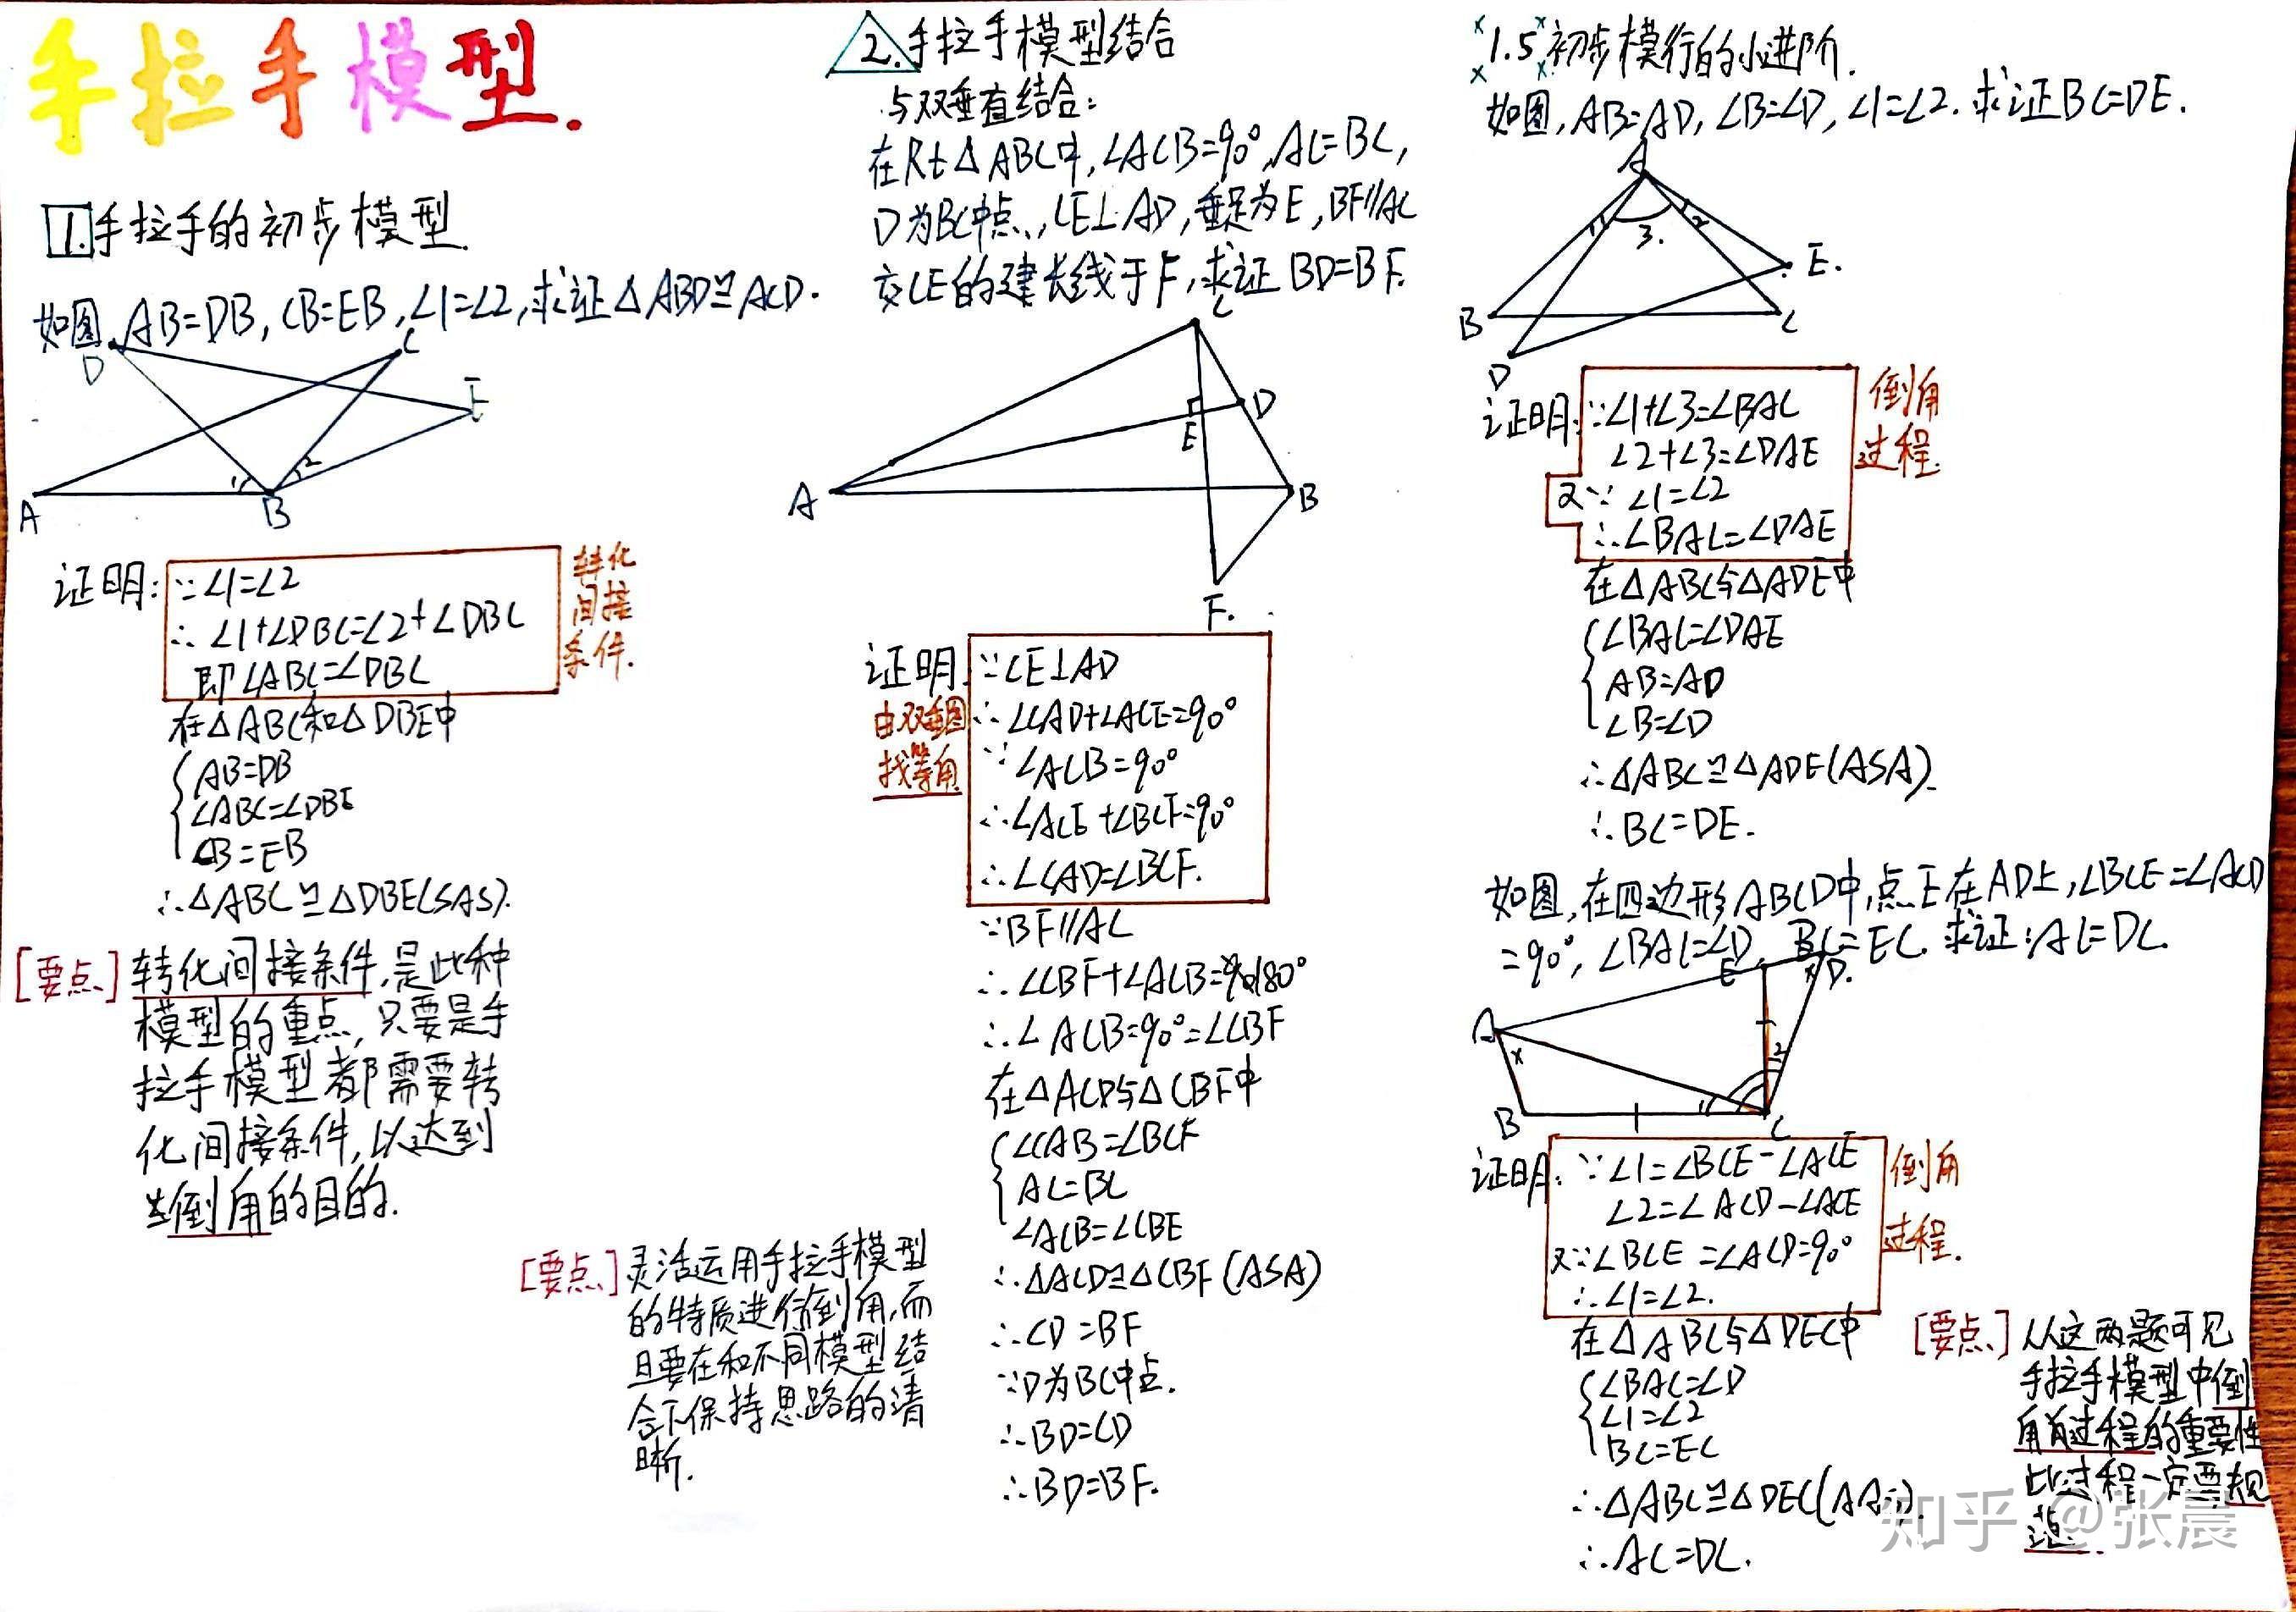 手拉手模型.
1.手拉手的初步模型.
如图,AB=DB,CB=EB,∠1=∠2,求证△ABD≌ACD.
D
C
E
1
2
A
B
证明:∵∠1=∠2
∴∠1+∠DBC=∠2+∠DBC
即∠ABC=∠DBC
转化
间接
条件.
在△ABC和△DBE中
AB=DB
∠ABC=∠DBE
CB=EB
∴△ABC≌△DBE(SAS).
[要点]转化间接条件,是此种
模型的重点,只要是手
拉手模型都需要转
化间接条件,以达到
倒角的目的.
2.手拉手模型结合
与双垂直结合:
在Rt△ABC中,∠ACB=90°,AC=BC,
D为BC中点,CE⊥AD,垂足为E,BF∥AC
交CE的建长线于F,求证BD=BF.
C
D
E
A
B
F.
证明:∵CE⊥AD
∴∠CAD+∠ACE=90°
∵∠ACB=90°
∴∠ACE+∠BCF=90°
∴∠CAD=∠BCF.
由双垂图
找等角
∵BF∥AC
∴∠CBF+∠ACB=180°
∴∠ACB=90°=∠CBF
在△ACD与△CBF中
∠CAB=∠BCF
AC=BC
∠ACB=∠CBE
∴△ACD≌△CBF(ASA)
∴CD=BF
∵D为BC中点.
∴BD=CD
∴BD=BF.
[要点]灵活运用手拉手模型
的特质进行倒角,而
且要在和不同模型结
合下保持思路的清
晰.
1.5初步模行的小进阶.
如图,AB=AD,∠B=∠D,∠1=∠2.求证BC=DE.
A
1
3.
2
E.
B
C
D
证明:∵∠1+∠3=∠BAC
∠2+∠3=∠DAE
又∵∠1=∠2
∴∠BAC=∠DAE
倒角
过程.
在△ABC与△ADE中
∠BAC=∠DAE
AB=AD
∠B=∠D
∴△ABC≌△ADE(ASA).
∴BC=DE.
如图,在四边形ABCD中,点E在AD上,∠BCE=∠ACD
=90°,∠BAC=∠D,BC=EC.求证:AC=DC.
E
D.
A
2
1
B
C
证明:∵∠1=∠BCE-∠ACE
∠2=∠ACD-∠ACE
又∵∠BCE=∠ACD=90°
∴∠1=∠2.
倒角
过程.
在△ABC与△DEC中
∠BAC=∠D
∠1=∠2
BC=EC
∴△ABC≌△DEC(AAS)
∴AC=DC.
[要点]从这两题可见
手拉手模型中倒
角过程的重要性
此过程一定要规
范.
知乎 @张晨